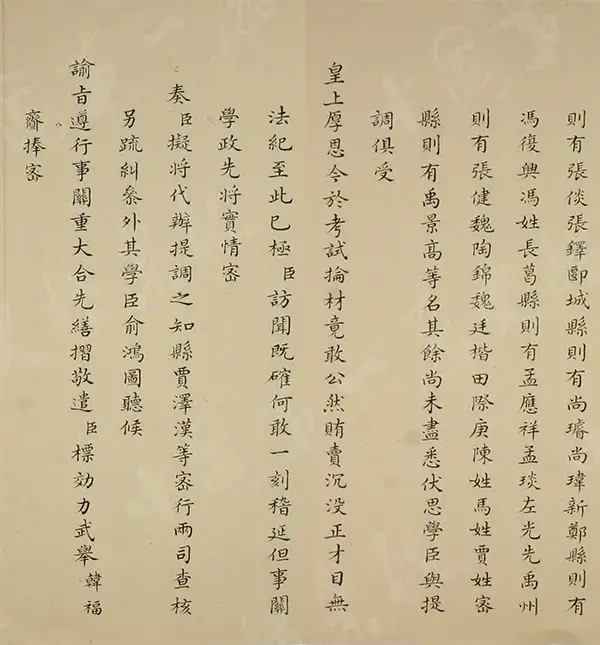 則有張倓張鐸郾城縣則有尚璿尚瑋新鄭縣則有
馮復興馮姓長葛縣則有孟應祥孟琰左光先禹州
則有張健魏陶錦魏廷楷田際庚陳姓馬姓賈姓密
縣則有禹景高等名其餘尚未盡悉伏思學臣與提
調俱受
皇上厚恩今於考試掄材竟敢公然賄賣沉没正才目無
法紀至此已極臣訪聞既確何敢一刻稽延但事關
學政先將實情密
奏臣擬將代辦提調之知縣賈澤漢等密行兩司查核
另疏糾叅外其學臣俞鴻圖聽候
諭旨遵行事關重大合先繕摺敬遣臣標効力武舉韓福
齎捧密